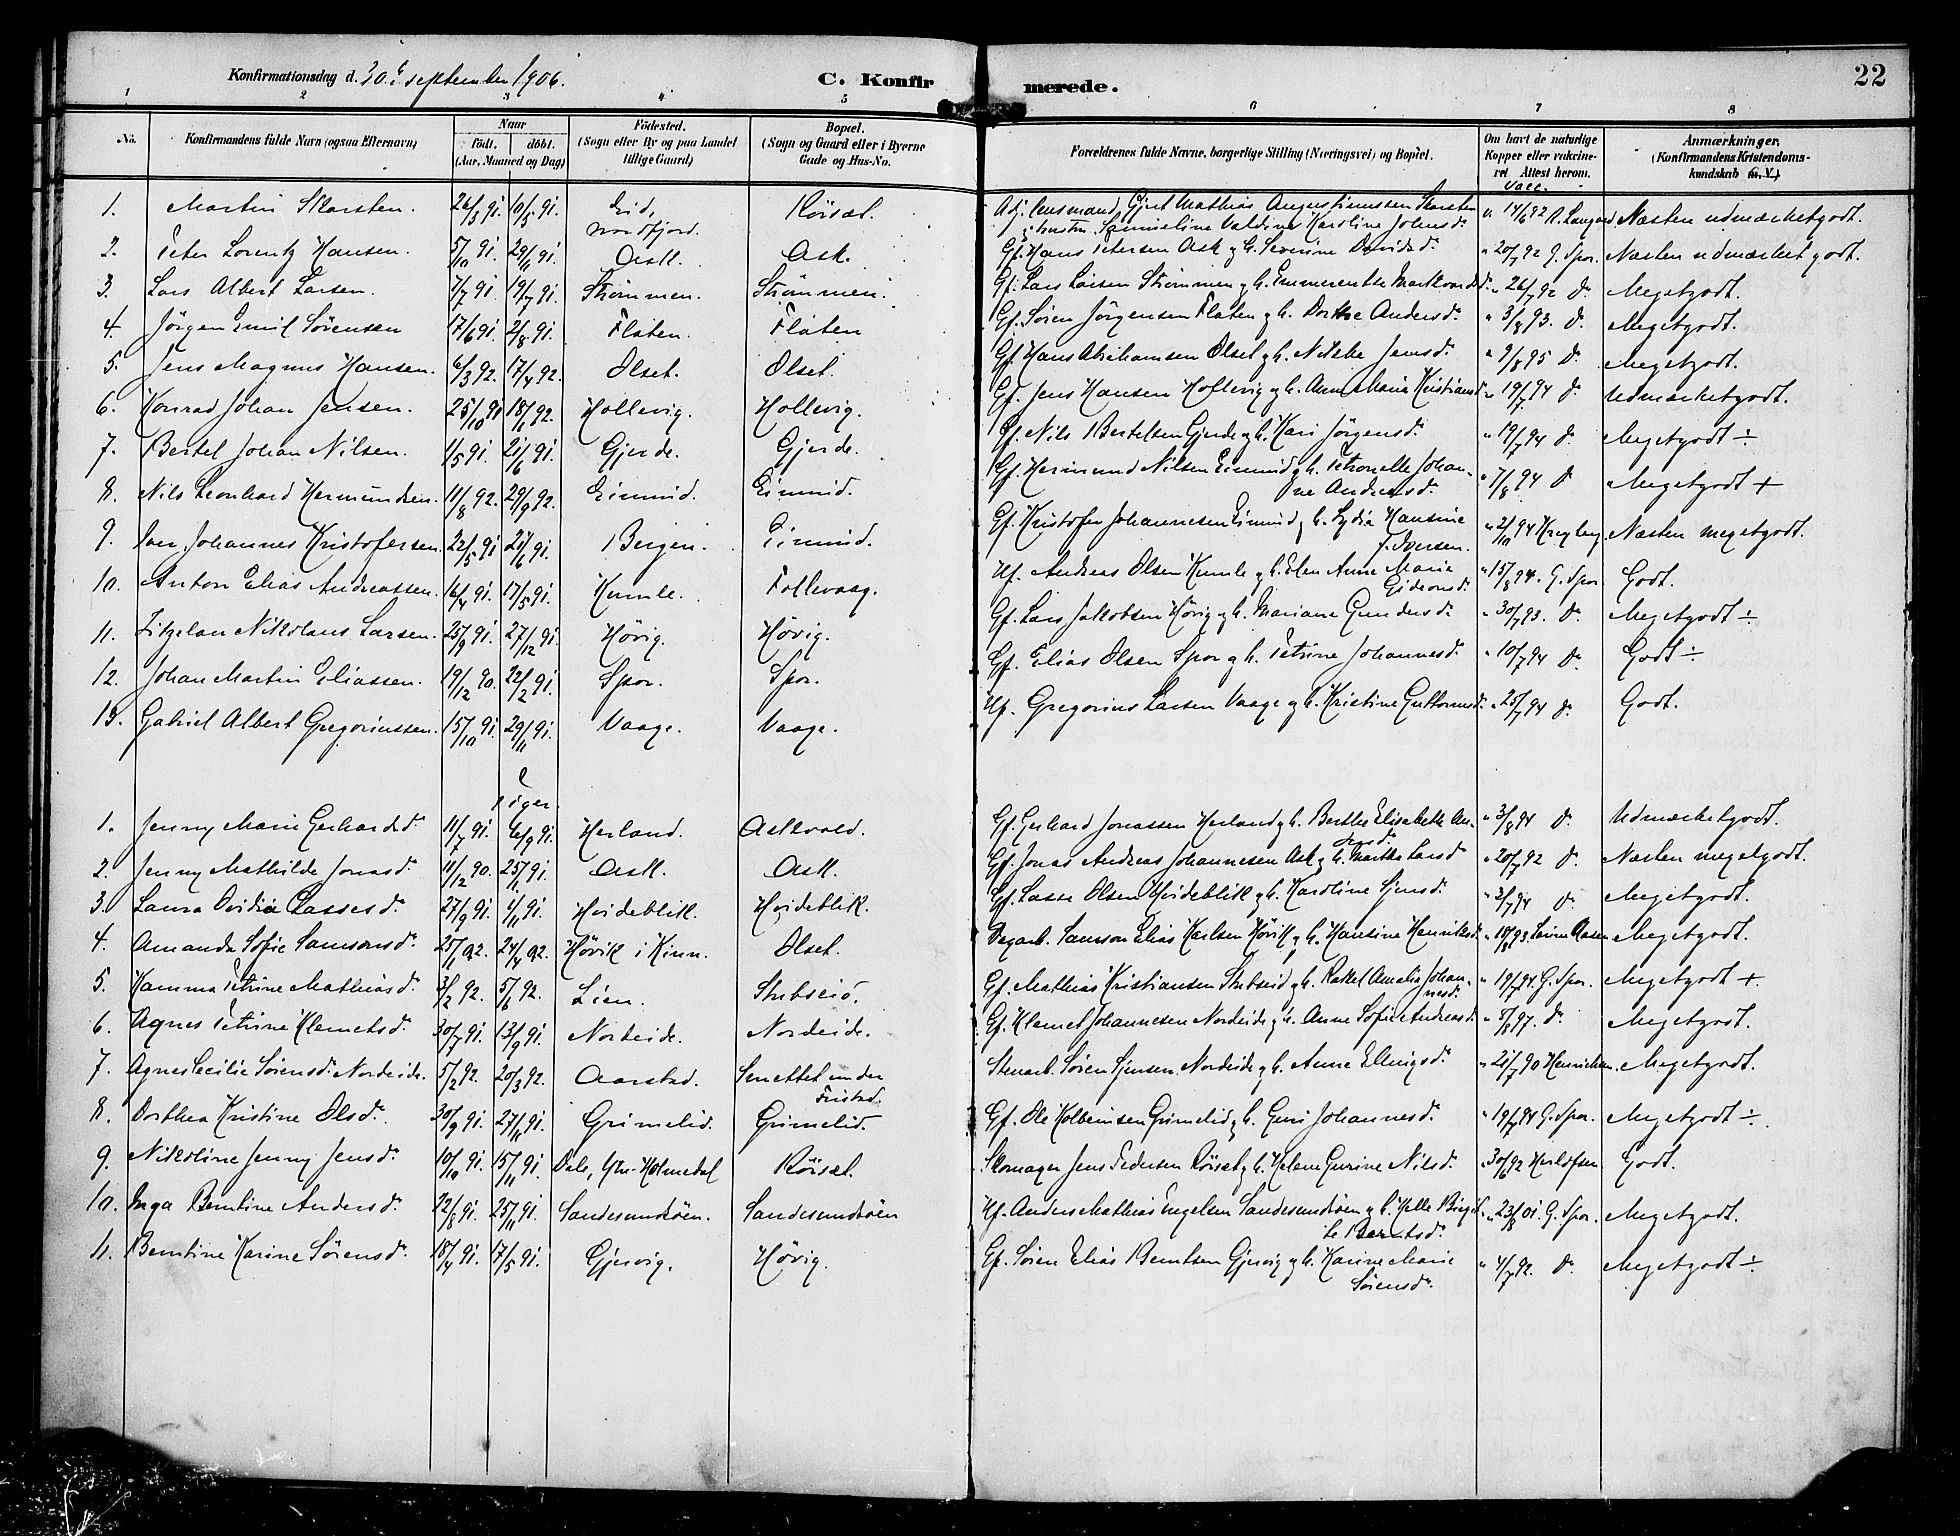 Konfirmationsdag d. 30. september 1906.
C. Konfirmerede.
22
1 2 3 4 5 6 7 8
No. Konfirmandens fulde Navn (ogsaa Efternavn) Naar födt. döbt. (Aar, Maaned og Dag) Födested. (Sogn eller By og paa Landet tillige Gaard) Bopæl. (Sogn og Gaard eller i Byerne Gade og Hus-No. Forældrenes fulde Navne, borgerlige Stilling (Næringsvei) og Bopæl. Om havt de naturlige Kopper eller vakcineret Attest herom. Anmærkninger. (Konfirmandens Kristendomskundskab m. V.)
Vacc.
1. Martin Skarsten. 26/3 91. 10/5 91. Eid, Nordfjord. Röisæt. Adj. lensmand Gjert Mathias Augustinussen Skarsten
Valdine Karoline Johnsd. 14/6 92 Næsten udmærketgodt.
2. Peter Lorentz Hansen. 5/10 91. 29/11 91. Ask. Ask. Gf. Hans Petersen Ask g. h. Severine Davidsd. " 20/7 92 G. Spor. Næsten udmærket godt.
3. Lars Albert Larsen. 7/7 91. 19/7 91. Strømmen. Strømmen. Gf. Lars Larsen Strømmen g. h. Emmerentse " 26/7 92 Do. Megetgodt.
4. Jörgen Emil Sørensen 17/6 91. 2/8 91. Flaten. Flaten Gf. Søren Jörgensen Flaten g. h. Dorthe Andersd. " 3/8 93. Do. Megetgodt.
5. Jens Magnus Hansen. 6/3 92. 17/4 92. Olset. Olset. Gf. Hans Abrahamsen Olset g. h. Nilske Jensd. " 9/8 95 Do. Megetgodt.
6. Konrad Johan Jensen. 25/10 90 18/1 92. Hollevig. Hollevig. Gf. Jens Hansen Hollevig g. h. Anne Maria Kristiansd. " 19/7 94 Do. Udmærketgodt.
7. Bertel Johan Nilsen. 1/5 91. 21/6 91. Gjerde. Gjerde. Gf. Nils Bertelsen Gjerde g. h. Kari Jörgensd. " 19/7 94 Do. Megetgodt ÷
8. Nils Leonhard Hermundsen. 11/8 92. 29/9 92. Eimind. Eimind. Gf. Hermund Nilsen Eimind g. h. Petronelle Johanne Andreasd. " 7/8 94 Do Megetgodt +
9. Iver Johannes Kristofersen 22/5 91 21/6 91. Bergen. Eimind. Gf. Kristofer Johannesen Eimind g. h. Lydia Hansine J. Iversen. " 2/10 94 Næsten megetgodt.
10. Anton Elias Andreassen. 16/4 91. 17/5 91. Kumle. Follevaag. Uf. Andreas Olsen Kumle g. h. Elen Anne Marie Gideonsd. " 15/8 94. G. Spor Godt.
11. Nikolaus Larsen. 25/9 91. 27/12 91. Hövig. Hövig. Gf. Lars Jakobsen Hövig g. h. Mariane Gundersd. " 30/7 93. Do. Megetgodt ÷
12. Johan Martin Eliassen. 19/12 90. 22/2 91. Spor. Spor. Gf. Elias Olsen Spor g. h. Petrine Johannesd. " 10/7 94 Do. Godt ÷
13. Gabriel Albert Gregoriussen. 15/10 91. 29/11 91. Vaage. Vaage. Uf. Gregorius Larsen Vaage g. h. Kristine Guttormsd. " 25/7 94 Do. Godt.
Piger.
1. Jenny Marie Gerhardsd. 11/7 91. 6/9 91. Herland. Askvold. Gf. Gerhard Jonassen Herland g. h. Berthe Elisabeth Andersd. " 3/8 94 Do. Udmærketgodt.
2. Jenny Mathilde Jonasd. 11/12 90. 25/1 91. Ask. Ask. Gf. Jonas Andreas Johannesen Ask g. h. Marthe Larsd " 20/7 92 Do. Næsten megetgodt.
3. Laura Ovidia Lassesd. 27/9 91. 1/11 91. Hvideblik. Hvideblik. Gf. Lasse Olsen Hvideblik g. h. Karoline Sjursd. " 3/7 94 Do. Megetgodt.
4. Amanda Sofie Samsonsd. 25/1 92. 24/4 92. Hövik i Kinn. Olset. Dagarb. Samson Elias Karlsen Hövik g. h. Hansine Henriksd. Megetgodt.
5. Hamma Petrine Mathiasd. 3/2 92. 5/6 92. Lien. Stubseid. Gf. Mathias Kristiansen Stubseid g. h. Rakel Amalia Johannesd. " 19/7 94 G. Spor. Megetgodt +.
6. Agnes Petrine Klemetsd. 30/7 91. 13/9 91. Nordeide. Nordeide. Gf. Klemet Johannesen Nordeide g. h. Anne Sofie Andreasd. " 5/8 97. Do. Megetgodt.
7. Agnes Cecilie Sörensd. Nordeide. 5/2 92. 20/3 92. Aarstad. under Fristad. Stenarb. Sören Sjursen Nordeide g. h. Anne Ellingsd. " 21/7 90 Henrichsen. Megetgodt.
8. Dorthea Kristine Olsd. 30/9 91. 27/11 91. Grimelid. Grimelid. Gf. Ole Kolbeinsen Grimelid g. h. Guri Johannesd. " 19/7 94 G. Spor. Megetgodt ÷.
9. Nikoline Jenny Jensd. 10/10 91. 15/11 91. Dale, Ytre Holmedal Röisæt. Skomager Jens Pedersen Röisæt g. h. Helene Gurine Nilsd. " 30/6 92 Herlofsen Godt.
10. Inga Berntine Andersd. 22/8 91. 25/11 91. Sandesundsöen. Sandesundsöen Uf. Anders Mathias Engelsen Sandesundsöen g. h. Helle Birgitte Berntsd. " 23/8 01. G. Spor. Megetgodt.
11. Berntine Karine Sörensd. 18/4 91. 17/5 91. Gjervig. Hövig. Gf. Sören Elias Berntsen Gjervig g. h. Karine Marie Sörensd. " 4/7 92. Do. Megetgodt ÷